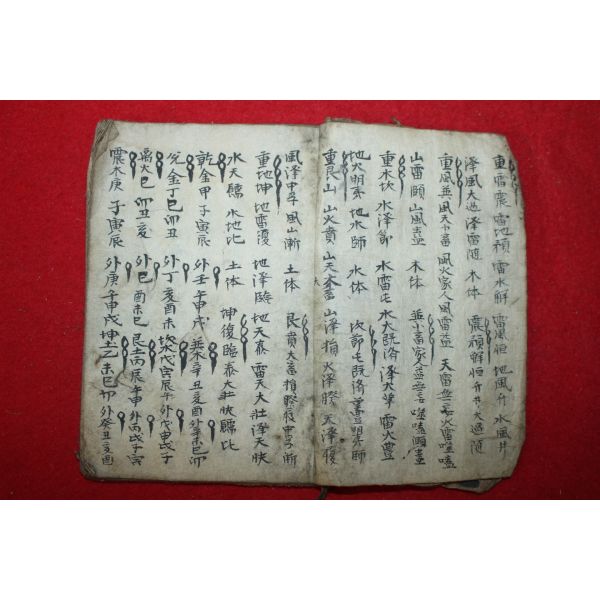 重雷震 雷地積 雷水觧 雷風恒 地風升 水風井
澤風大過 澤雷随 木体 震積觧恒升井大過随
重風 風天小畜 風火家人 風雷益 天雷無妄 火雷噬嗑
山雷頤 山風蠱 木体 小畜家人益無妄噬嗑頤蠱
重水坎 水澤節 水雷屯 水火既済 澤火革 雷火豊
地火明夷 地水師 水体 坎節屯既済革豊明夷師
重艮山 山火賁 山天大畜 山澤損 火澤睽 天澤履
風澤中孚 風山漸 土体 艮賁大畜損睽履中孚漸
重地坤 地雷復 地澤臨 地天泰 雷天大壮 澤天夬
水天需 水地比 土体 坤復臨泰大壮夬需比
乾金甲子寅辰 外壬午申戌 巽木辛丑亥酉 外辛未巳卯
兌金丁巳卯丑 外丁亥酉未 坎水戊寅辰午 外戊申戌子
离火巳卯丑亥 外巳酉未巳 艮土丙辰午申 外丙戌子寅
震木庚子寅辰 外庚午申戌 坤土乙未巳卯 外癸丑亥酉